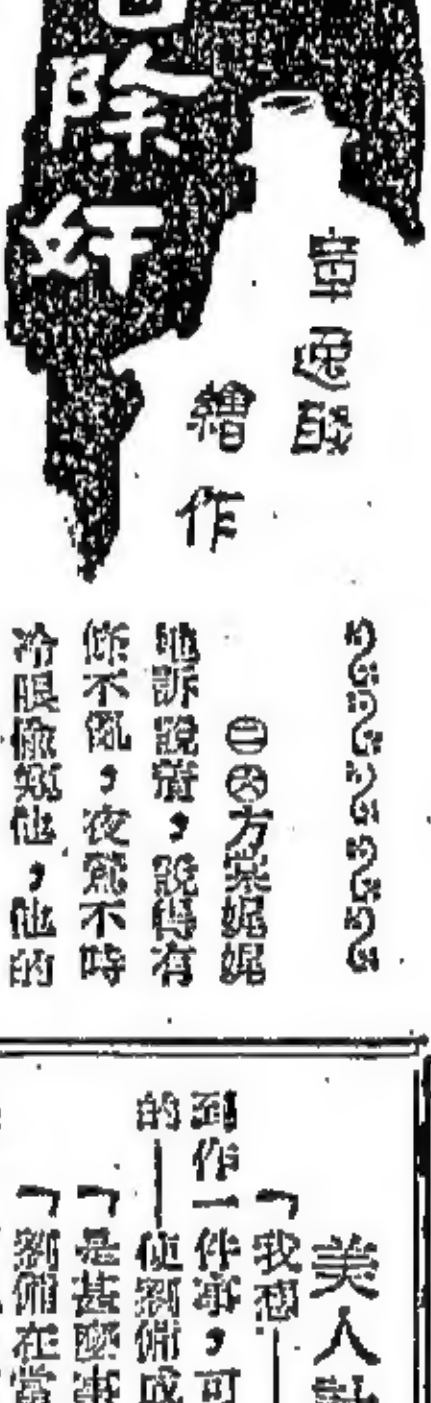 除奸
董逸
繪作
㊁㊅方紫妮妮
地訴說着,說得有
條不紊,夜鶯不時
冷眼偷窺他,他的
美人計
「我想——
到作一件事,可
的——使劉備成
「是甚麼事
「劉備在當